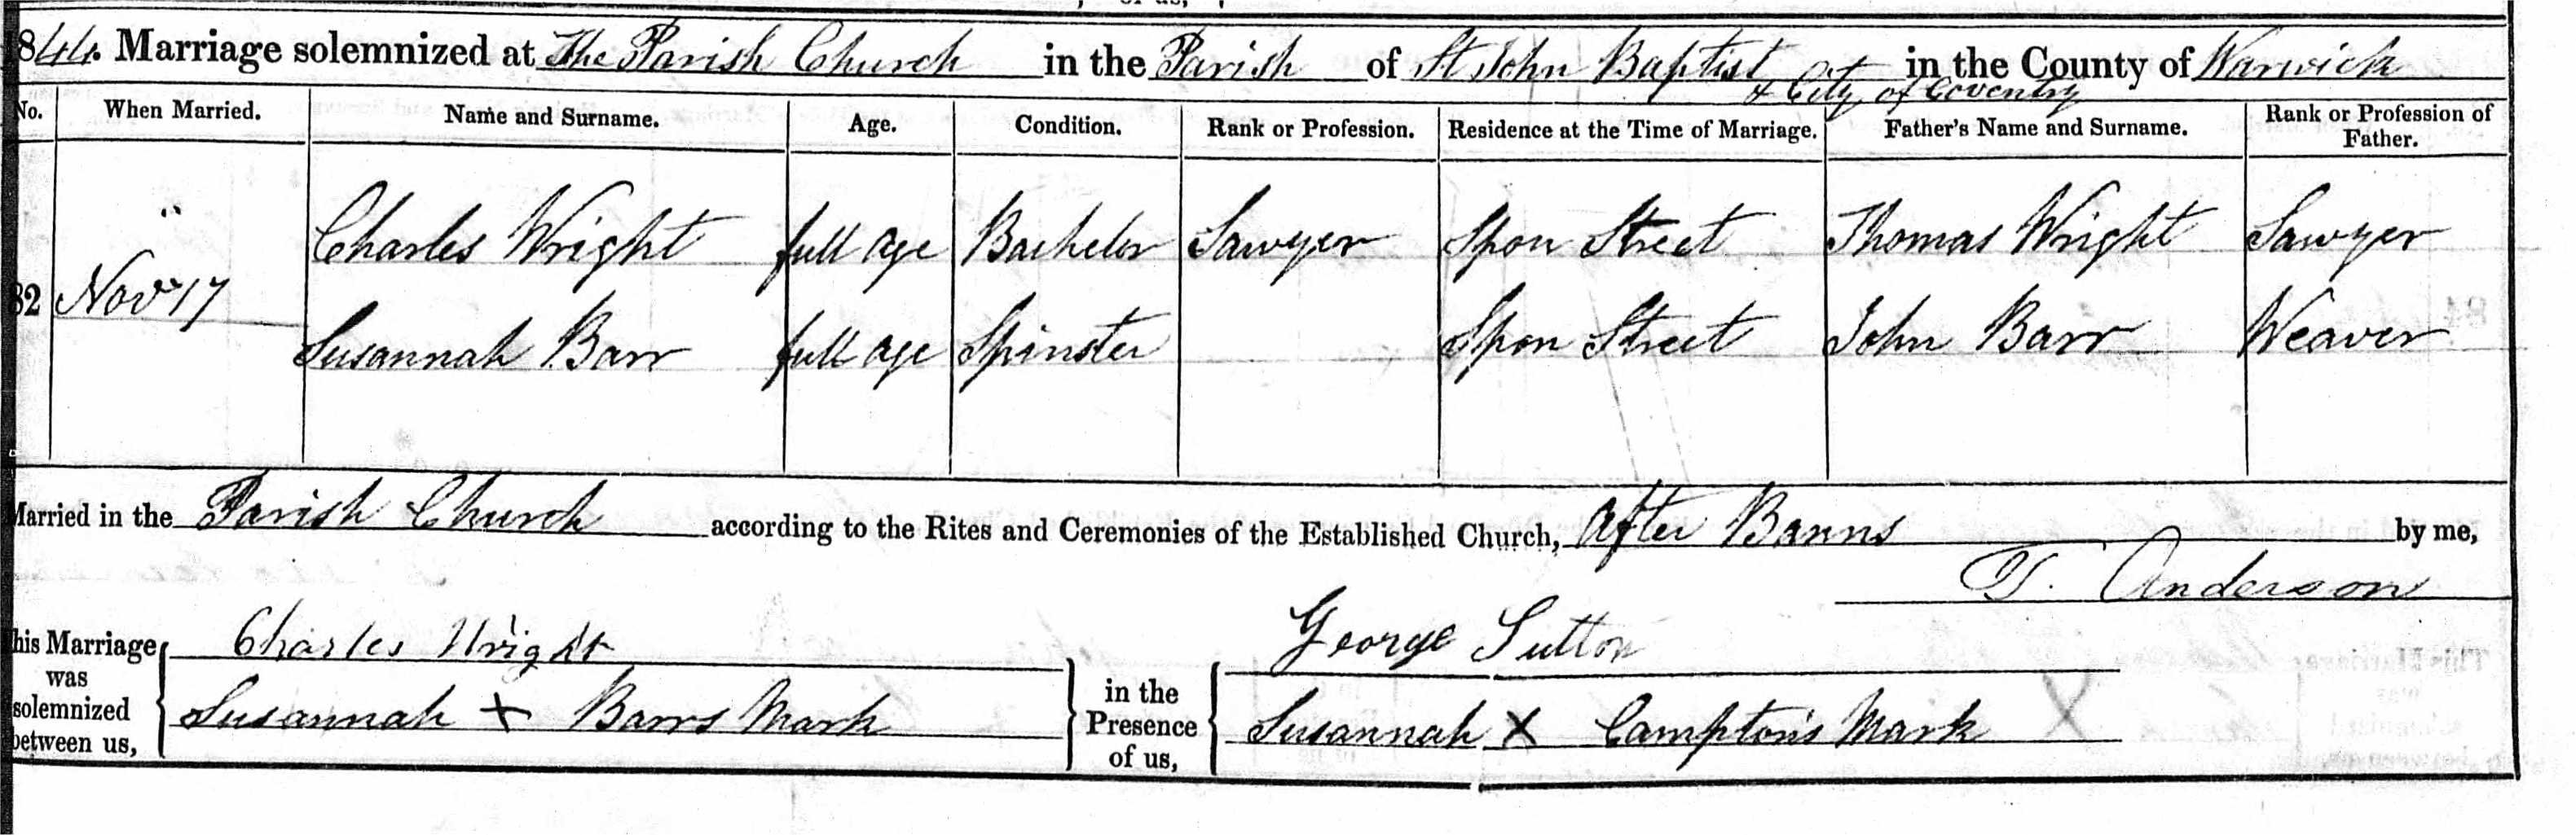 1844. Marriage solemnized at The Parish Church in the Parish of St John Baptist in the County of Warwick
& City of Coventry
No. When Married. Name and Surname. Age. Condition. Rank or Profession. Residence at the Time of Marriage. Father's Name and Surname. Rank or Profession of Father.
Charles Wright full age Bachelor Sawyer Spon Street Thomas Wright Sawyer
82 Novr 17
Susannah Barr full age Spinster Spon Street John Barr Weaver
Married in the Parish Church according to the Rites and Ceremonies of the Established Church, After Banns by me,
T. Anderson
This Marriage was solemnized between us, Charles Wright
Susannah X Barrs Mark
in the Presence of us, George Sutton
Susannah X Campton's Mark